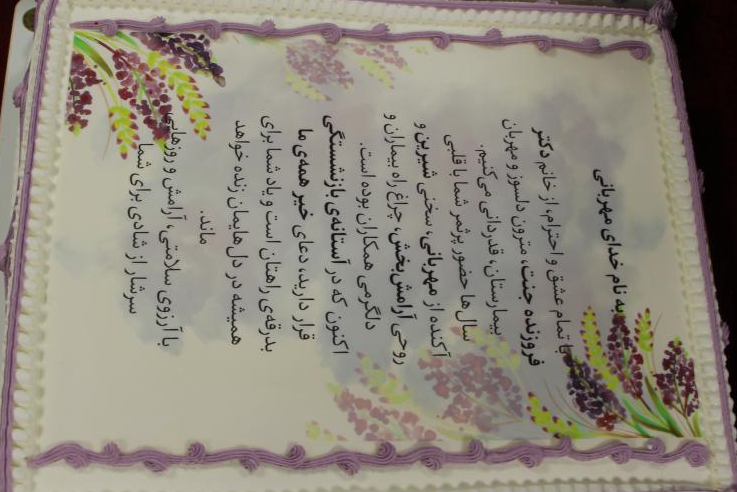 به نام خدای مهربانی
با تمام عشق و احترام، از خانم دکتر
فروزنده جنت، مترون دلسوز و مهربان
بیمارستان، قدردانی می‌کنیم.
سال‌ها حضور پرثمر شما با قلبی
آکنده از مهربانی، سخنی شیرین و
روحی آرامش‌بخش، چراغ راه بیماران و
دلگرمی همکاران بوده است.
اکنون که در آستانه‌ی بازنشستگی
قرار دارید، دعای خیر همه‌ی ما
بدرقه‌ی راهتان است و یاد شما برای
همیشه در دل‌هایمان زنده خواهد
ماند.
با آرزوی سلامتی، آرامش و روزهایی
سرشار از شادی برای شما